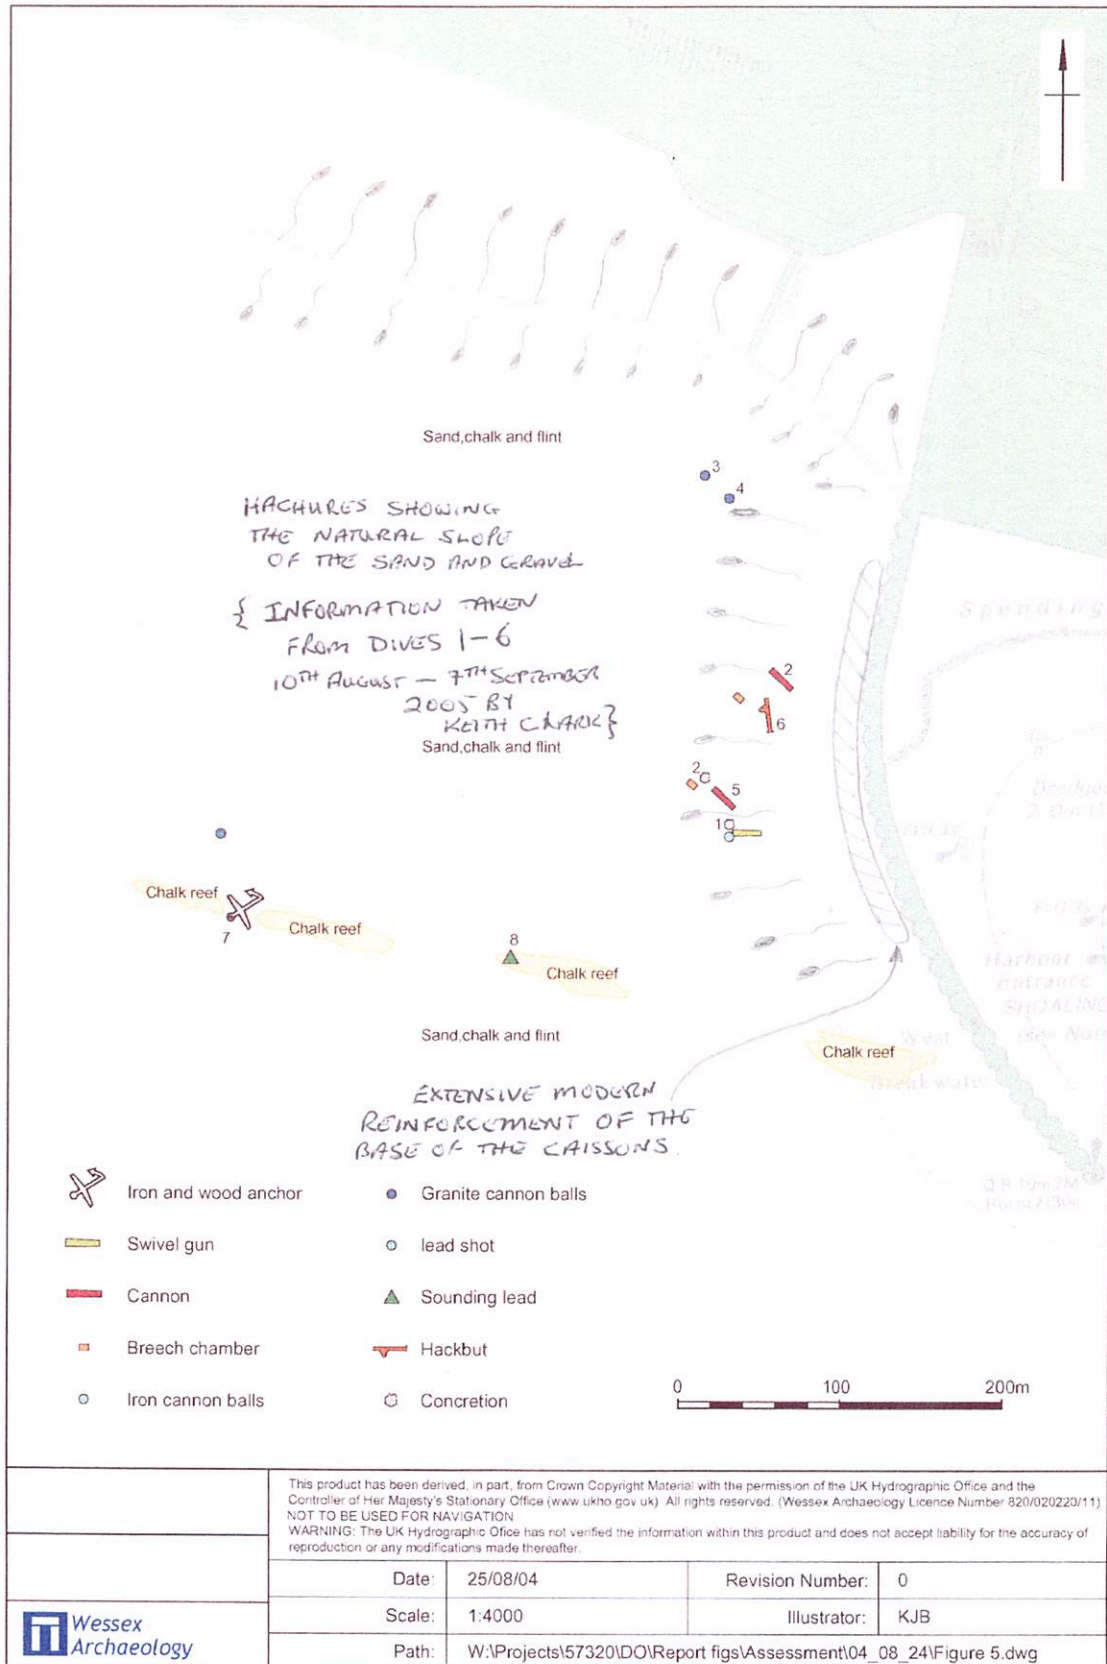 Sand,chalk and flint
3
4
HACHURES SHOWING
THE NATURAL SLOPE
OF THE SAND AND GRAVEL
{ INFORMATION TAKEN
FROM DIVES 1-6
10TH AUGUST - 7TH SEPTEMBER
2005 BY
KEITH CLARK}
Spending
2
6
Sand,chalk and flint
2
5
10
Chalk reef
7
Chalk reef
8
Chalk reef
Harbour
Entrance
SHOALING
Sand,chalk and flint
West
(see
Chalk reef
Breakwater
EXTENSIVE MODERN
REINFORCEMENT OF THE
BASE OF THE CAISSONS.
Iron and wood anchor
Granite cannon balls
Swivel gun
lead shot
Cannon
Sounding lead
Breech chamber
Hackbut
Iron cannon balls
Concretion
0 100 200m
This product has been derived, in part, from Crown Copyright Material with the permission of the UK Hydrographic Office and the
Controller of Her Majesty's Stationary Office (www.ukho.gov.uk) All rights reserved. (Wessex Archaeology Licence Number 820/020220/11)
NOT TO BE USED FOR NAVIGATION
WARNING: The UK Hydrographic Ofice has not verified the information within this product and does not accept liability for the accuracy of
reproduction or any modifications made thereafter.
Date: 25/08/04 Revision Number: 0
Scale: 1:4000 Illustrator: KJB
Path: W:\Projects\57320\DO\Report figs\Assessment\04_08_24\Figure 5.dwg
Wessex
Archaeology